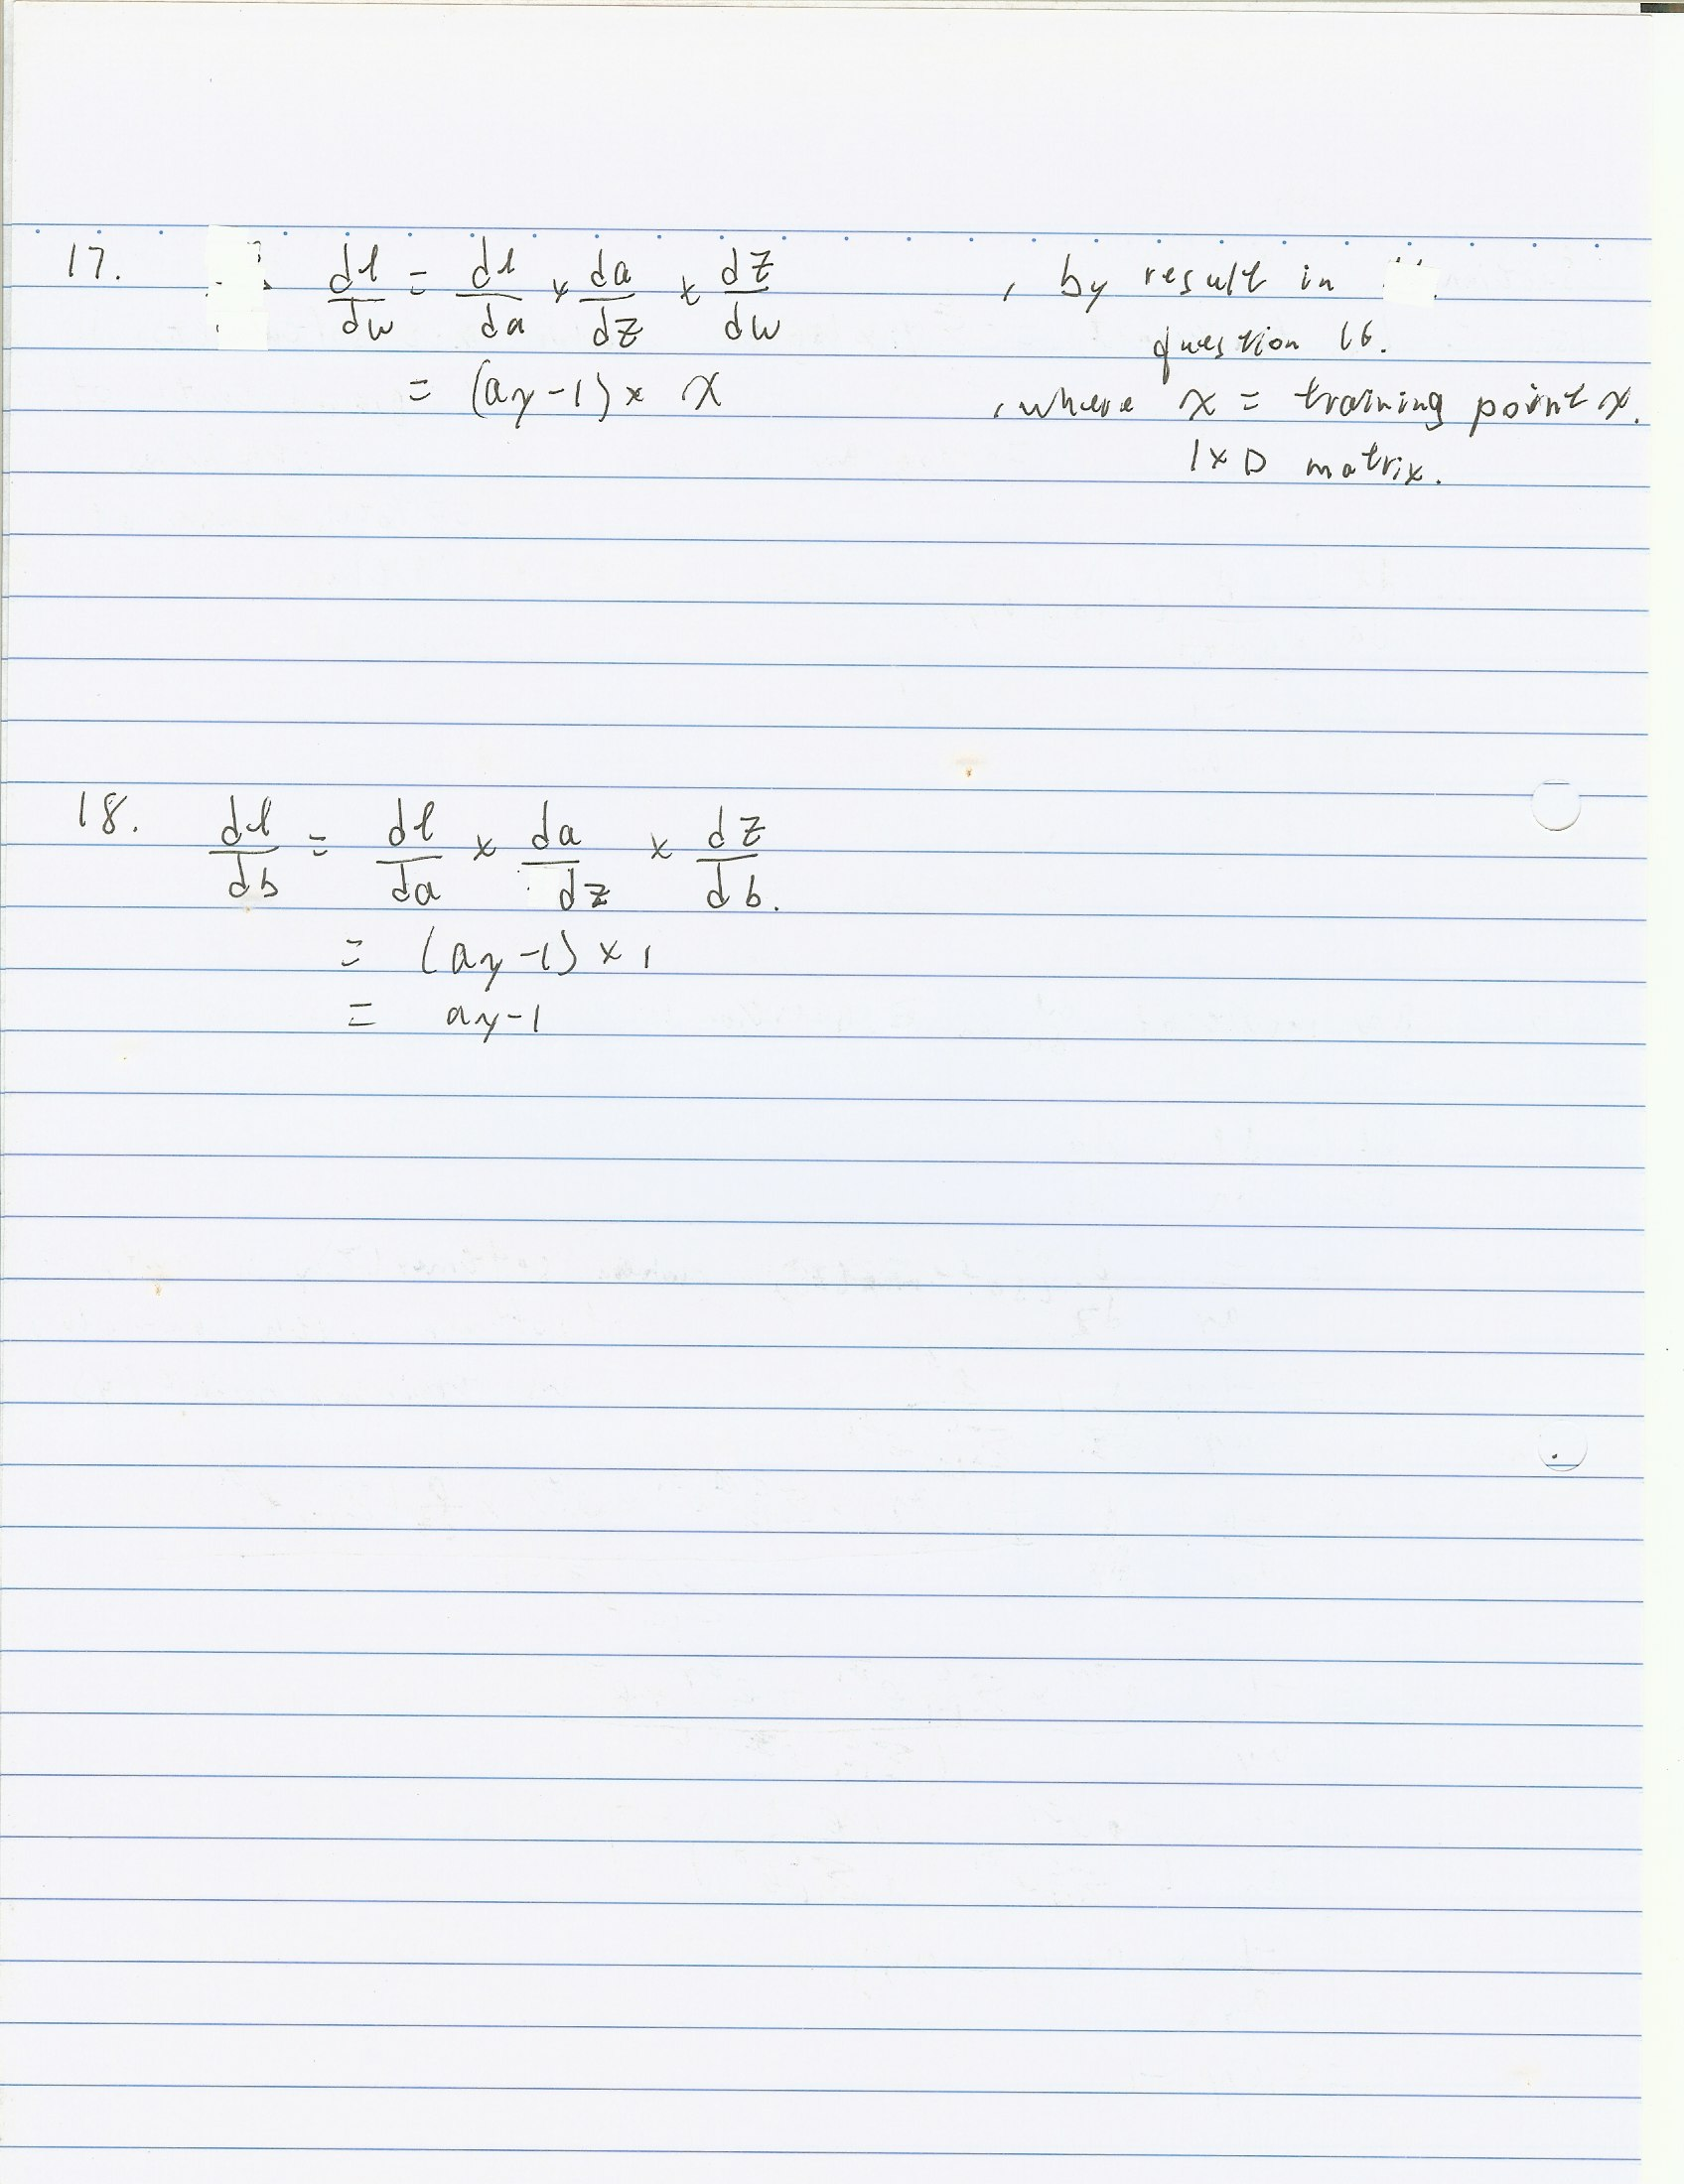 17. dl/dw = dl/da × da/dz × dz/dw , by result in
question 16.
= (ay-1) × x , where x = training point x.
1×D matrix.
18. dl/db = dl/da × da/dz × dz/db.
= (ay-1) × 1
= ay-1